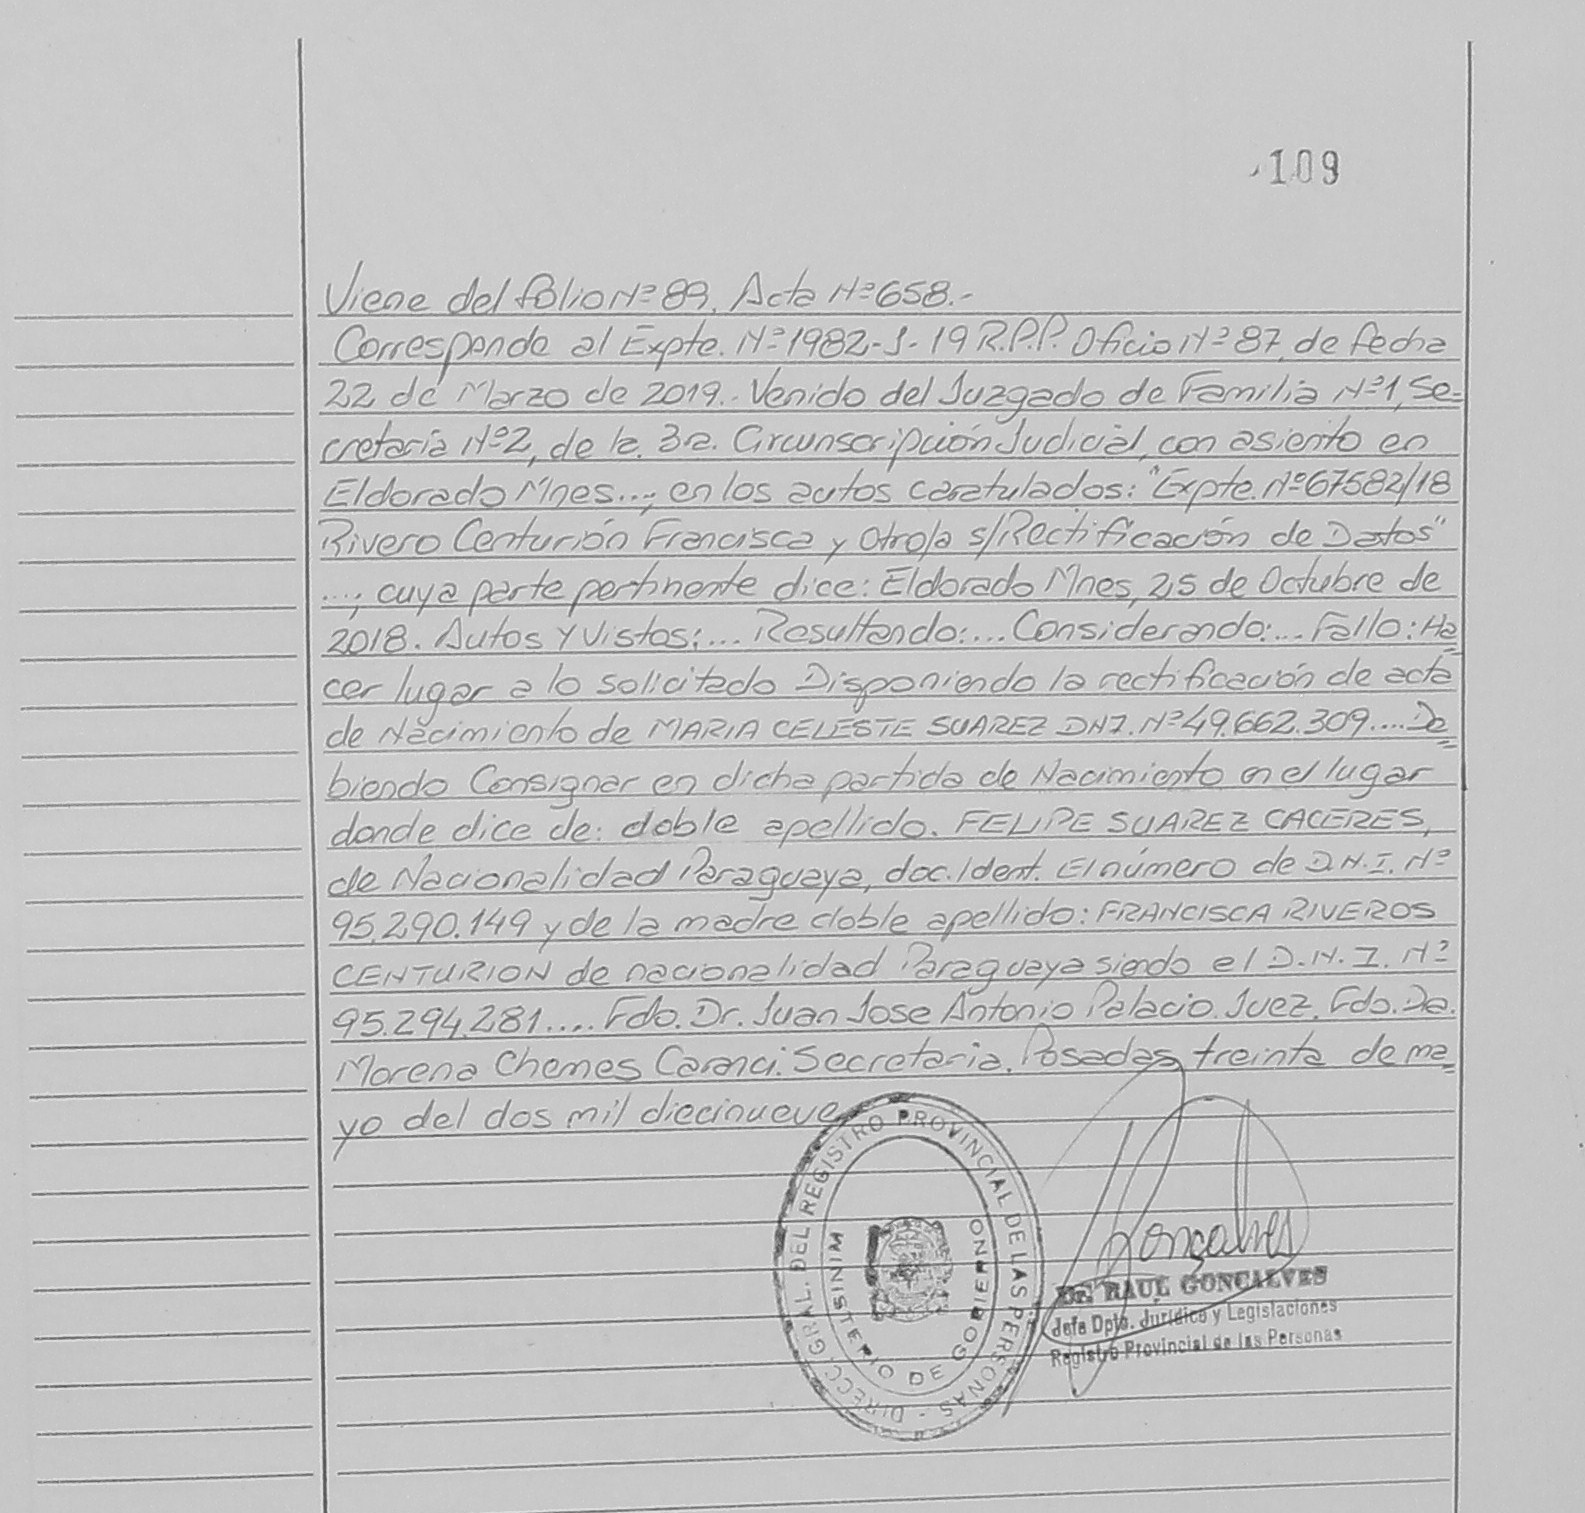 109
Viene del folio Nº 89. Acta Nº 658.-
Corresponde al Expte. Nº 1982-J-19 R.P.P. Oficio Nº 87, de fecha
22 de Marzo de 2019.- Venido del Juzgado de Familia Nº 1, Se=
cretaria Nº 2, de la 3ra. Circunscripción Judicial, con asiento en
Eldorado Mnes...; en los autos caratulados: "Expte. Nº 67582/18
Rivero Centurión Francisca y Otro/a s/Rectificación de Datos"
...; cuya parte pertinente dice: Eldorado Mnes, 25 de Octubre de
2018. Autos Y Vistos:... Resultando:... Considerando:... Fallo: Ha=
cer lugar a lo solicitado Disponiendo la rectificación de acta
de Nacimiento de MARIA CELESTE SUAREZ DNI. Nº 49.662.309.... De=
biendo Consignar en dicha partida de Nacimiento en el lugar
donde dice de: doble apellido. FELIPE SUAREZ CACERES,
de Nacionalidad Paraguaya, doc. Ident. El número de D.N.I. Nº
95.290.149 y de la madre doble apellido: FRANCISCA RIVEROS
CENTURION de nacionalidad Paraguaya siendo el D.N.I. Nº
95.294.281.... Fdo. Dr. Juan Jose Antonio Palacio. Juez. Fdo. Dra.
Morena Chemes Caranci. Secretaria. Posadas, treinta de ma=
yo del dos mil diecinueve
DIRECC. GRAL. DEL REGISTRO PROVINCIAL DE LAS PERSONAS -
MINISTERIO DE GOBIERNO
Gonçalves
Dr. RAUL GONCALVES
Jefe Dpto. Jurídico y Legislaciones
Registro Provincial de las Personas